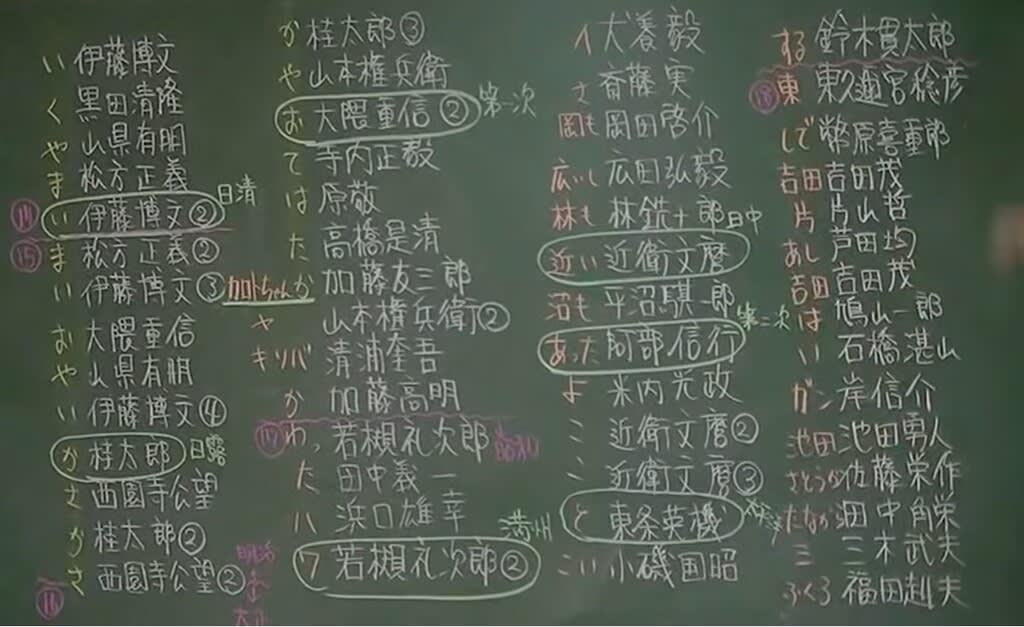 い 伊藤博文
く 黒田清隆
や 山県有朋
ま 松方正義
日清
⑭ い 伊藤博文②
⑮ ま 松方正義②
い 伊藤博文③
お 大隈重信
や 山県有朋
い 伊藤博文④
か 桂太郎 日露
さ 西園寺公望
か 桂太郎②
さ 西園寺公望②
⑯
明治
大正
か 桂太郎③
や 山本権兵衛
お 大隈重信② 第一次
て 寺内正毅
は 原敬
た 高橋是清
加トちゃんか 加藤友三郎
ヤ 山本権兵衛②
キリバ 清浦奎吾
か 加藤高明
⑰ わっ 若槻礼次郎 昭和
た 田中義一
ハ 浜口雄幸
満州
ワ 若槻礼次郎②
イ 犬養毅
さ 斉藤実
岡も 岡田啓介
広いし 広田弘毅
林も 林銑十郎 日中
近い 近衛文麿
沼も 平沼騏一郎
第二次
あった 阿部信行
よ 米内光政
こ 近衛文麿②
こ 近衛文麿③
と 東条英機
こい 小磯国昭
する 鈴木貫太郎
⑱ 東 東久邇宮稔彦
しで 幣原喜重郎
吉田 吉田茂
片 片山哲
あし 芦田均
吉田 吉田茂
は 鳩山一郎
い 石橋湛山
ガン 岸信介
池田 池田勇人
さとうが 佐藤栄作
たなか 田中角栄
三 三木武夫
ふくろ 福田赳夫